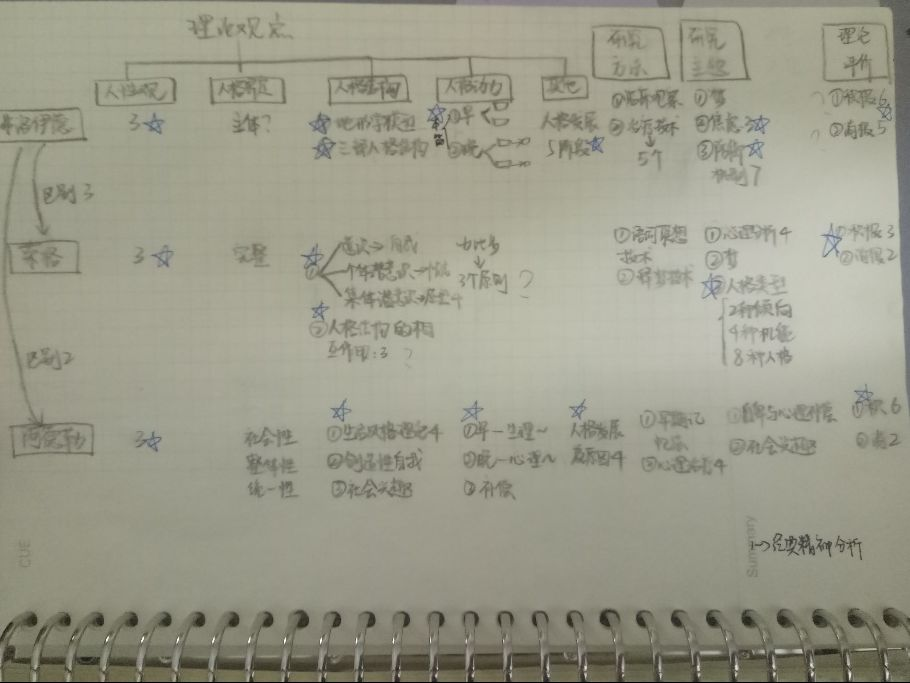 理论观点
研究方法
研究主题
理论评价
人性观
人格界定
人格结构
人格动力
其他
弗洛伊德
3☆
主体?
☆地形学模型
☆三部人格结构
☆
①早
②晚
人格发展
5阶段☆
①临床观察
②治疗技术
↓
5个
①梦
②焦虑3☆
③防御☆
机制7
①积极6
☆
②消极5
区别3
荣格
3☆
完整
☆
①
意识→自我
个体潜意识→情结
集体潜意识→原型4
☆
②人格结构的相
互作用:3 ?
力比多
↓
3个原则?
①语词联想
技术
②释梦技术
①心理分析4
②梦
☆③人格类型
2种倾向
4种机能
8种人格
☆①积极3
②消极2
区别2
阿德勒
3☆
社会性
整体性
统一性
☆
①生活风格理论4
②创造性自我
③社会兴趣3
☆
①早—生理~
②晚—心理~
③补偿
☆
人格发展
原因4
①早期记
忆
②心理治疗4
①自卑与心理补偿
②社会兴趣3
☆
①积6
②消2
CUE
Summary
1→经典精神分析